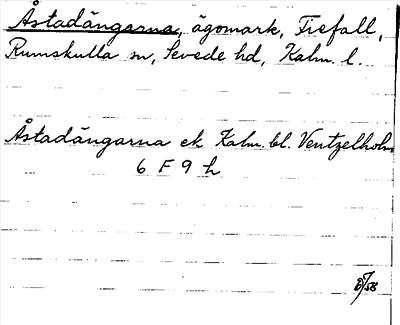 Åstadängarna, ägomark, Trefall,
Rumskulla sn, Sevede hd, Kalm. l.
Åstadängarna ek Kalm. bl. Ventzelholm
6 F 9 h